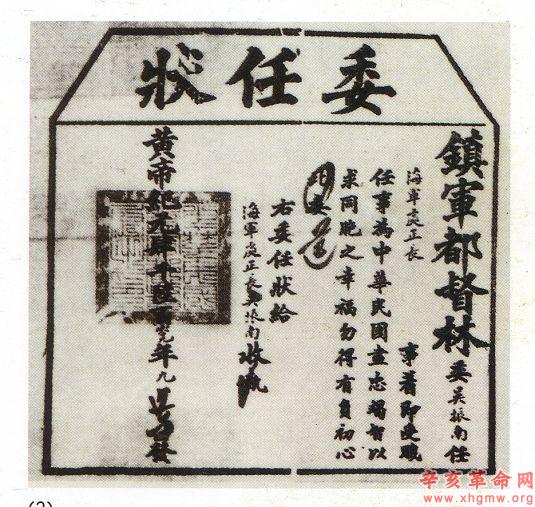 委任狀
鎮軍都督林委吳振南任
海軍處正長 事着即受職
任事為中華民國盡忠竭智以
求同胞之幸福勿得有負初心
右委任狀給
海軍處正長吳振南收執
黃帝紀元肆千陸百九年九發
辛亥革命网
www.xhgmw.org
(2)